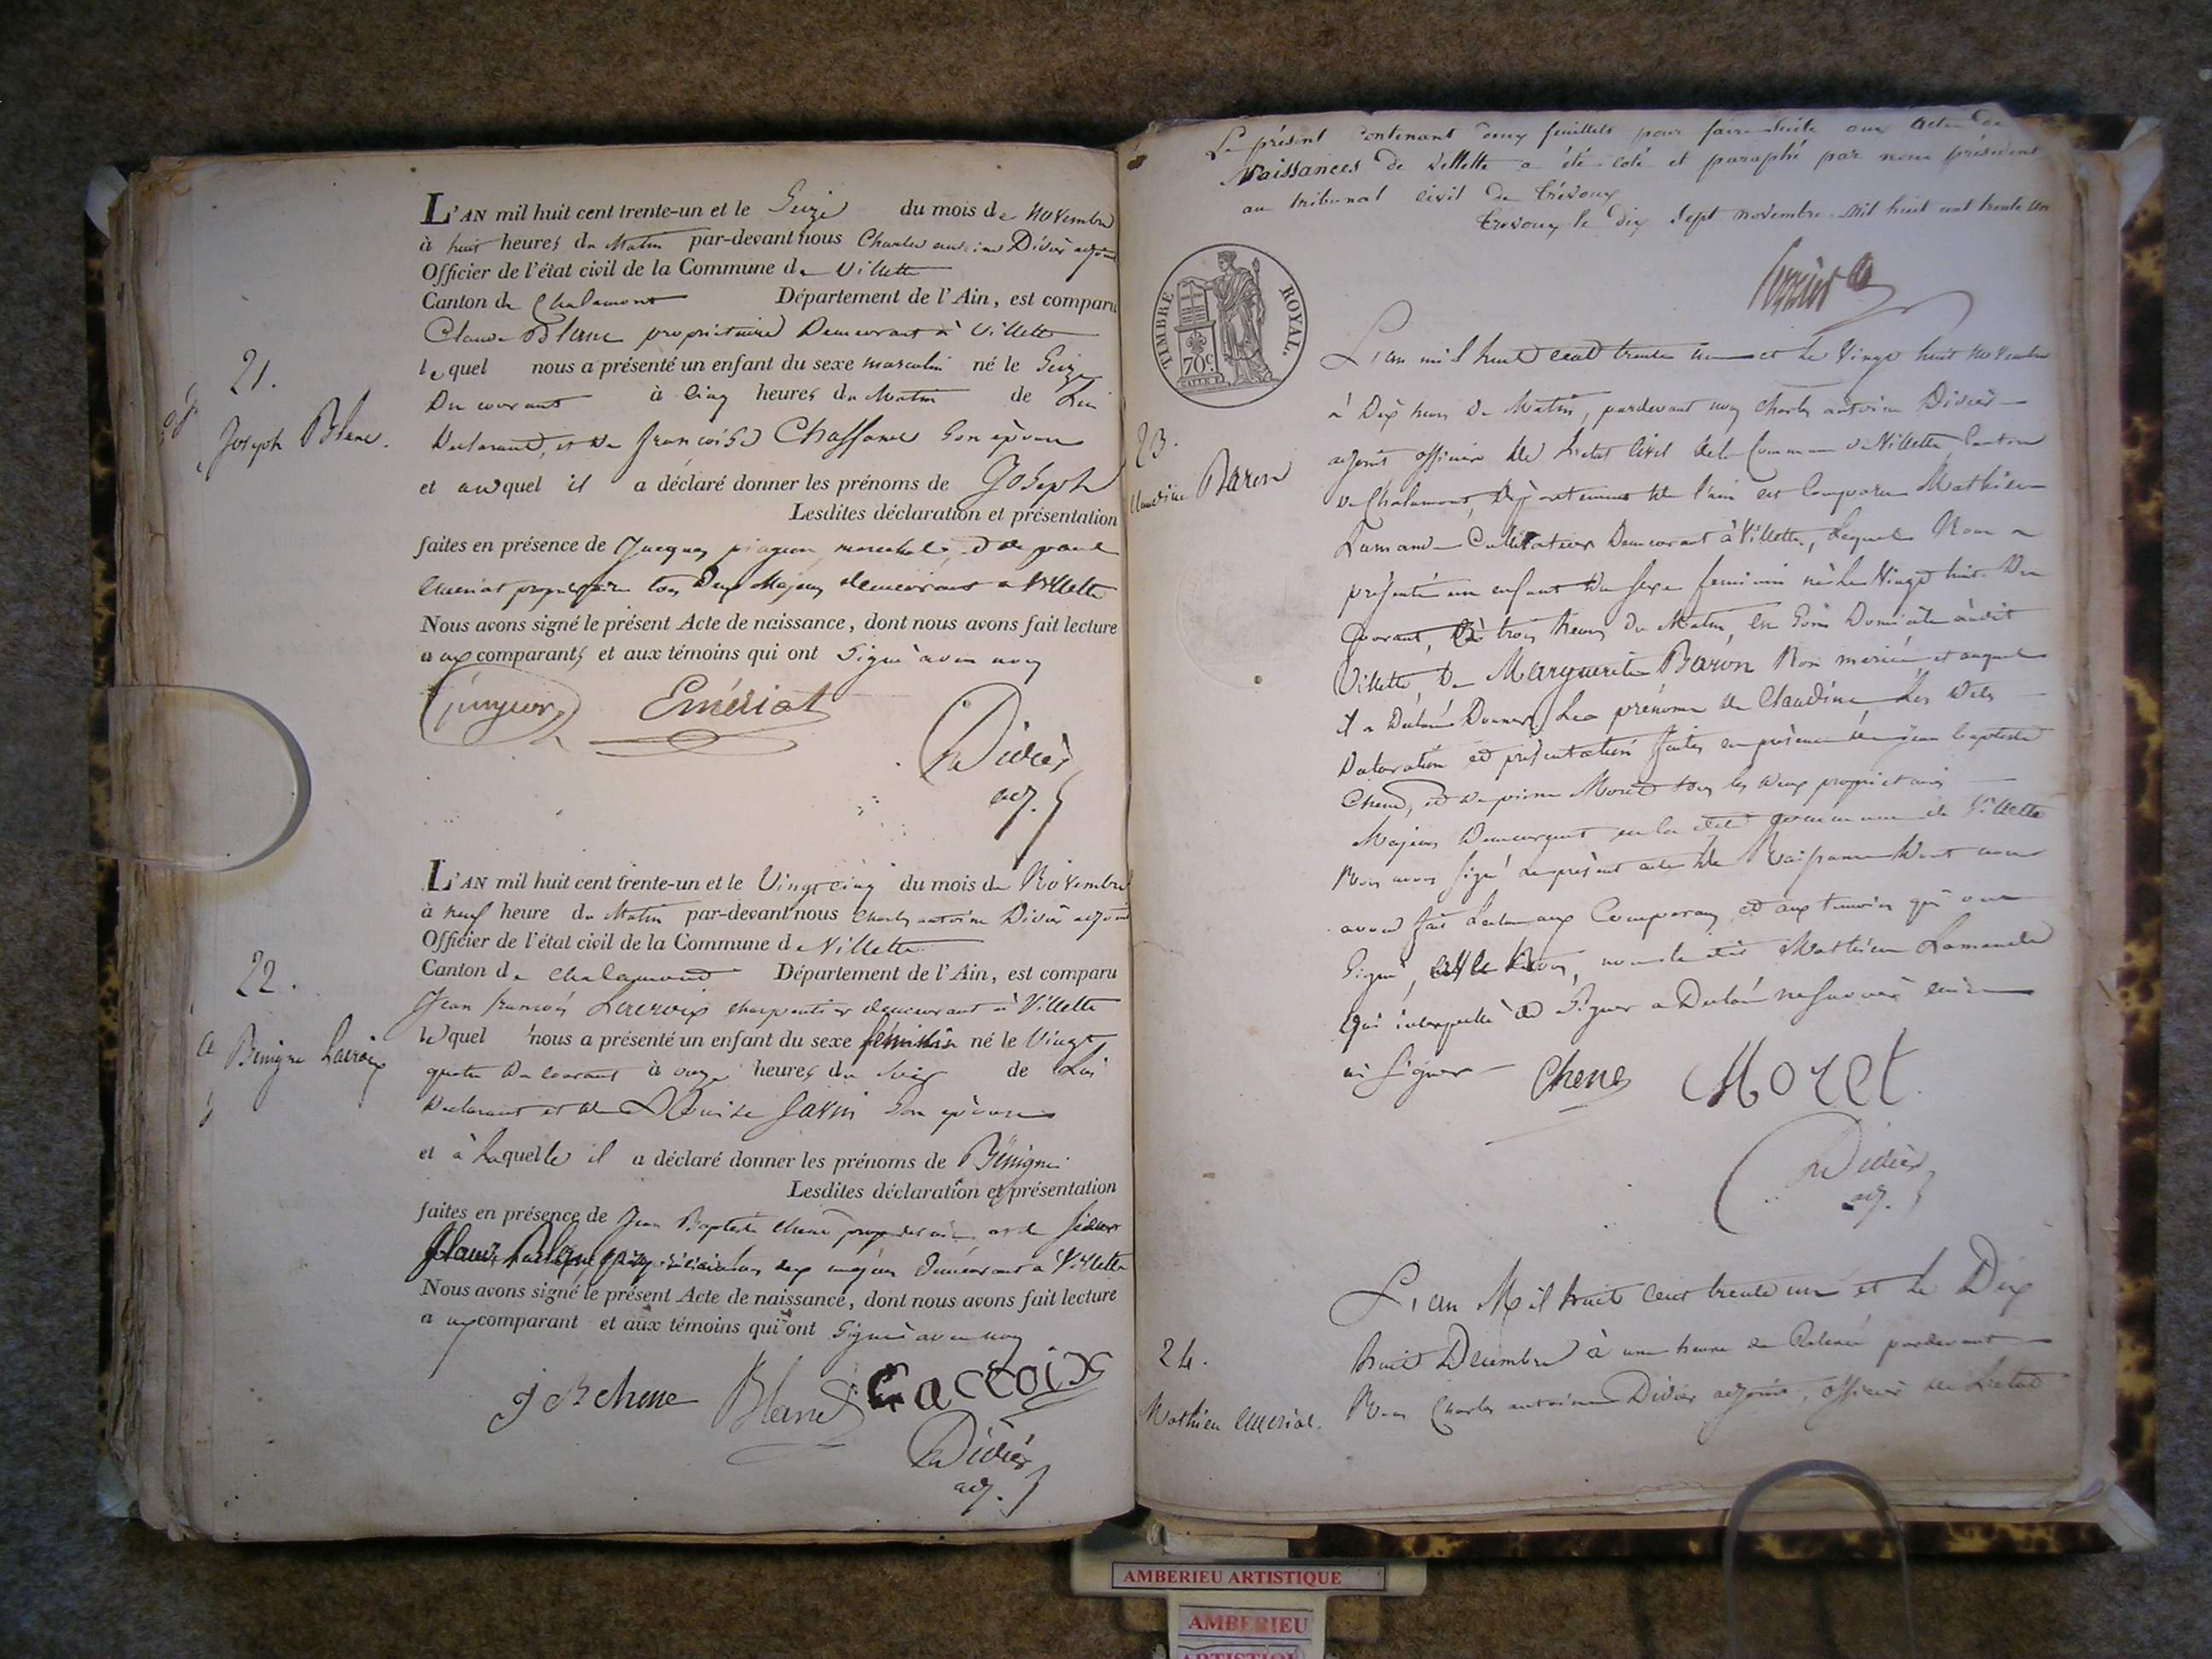 L'AN mil huit cent trente-un et le Seize du mois de novembre
à huit heures du Matin par-devant nous Charles antoine Didier adjoint
Officier de l'état civil de la Commune de Villette
Canton de Chalamont Département de l'Ain, est comparu
Claude Blanc propriétaire Demeurant à Villette
lequel nous a présenté un enfant du sexe masculin né le Seize
Du courant à Cinq heures du Matin de Lui
21.
Joseph Blanc.
Déclarant, et de françoise Chassane Son épouse
et auquel il a déclaré donner les prénoms de Joseph
Lesdites déclaration et présentation
faites en présence de Jacques marechal, et de
Emeriat propriétaire tous Deux Majeurs demeurant a Villette
Nous avons signé le présent Acte de naissance, dont nous avons fait lecture
aux comparants et aux témoins qui ont Signé avec nous
Emériat
Didier
adj.
L'AN mil huit cent trente-un et le Vingt cinq du mois de Novembre
à neuf heure du Matin par-devant nous Charles antoine Didier adjoint
Officier de l'état civil de la Commune de Villette
22.
Canton de Chalamont Département de l'Ain, est comparu
Jean françois Lacroix charpentier demeurant à Villette
Bénigne Lacroix
lequel nous a présenté un enfant du sexe féminin né le Vingt
quatre du courant à onze heures du Soir de Lui
Déclarant et de Louise Savin Son épouse
et à Laquelle il a déclaré donner les prénoms de Bénigne
Lesdites déclaration et présentation
faites en présence de Jean Baptiste Chene propriétaire et de
deux majeurs Demeurant à Villette
Nous avons signé le présent Acte de naissance, dont nous avons fait lecture
aux comparant et aux témoins qui ont Signé avec nous
J Bte chene Blanc Lacroix
Didier
adj.
Le présent Contenant deux feuillets pour faire Suite aux Actes de
Naissances de Villette a été coté et paraphé par nous président
au tribunal civil de Trévoux
Trévoux le dix Sept novembre mil huit cent trente un
TIMBRE ROYAL.
70c.
L'an mil huit cent trente un et le Vingt huit novembre
à Dix heures du Matin, pardevant nous Charles antoine Didier
23.
Claudine Baron
adjoint officier de L'etat Civil de la Commune de Villette Canton
de Chalamont, Département de l'ain est Comparu Mathieu
Lamand Cultivateur Demeurant à Villette, Lequel Nous a
présenté un enfant du sexe feminin né le Vingt huit Du
Courant, à trois heures du Matin, en Son Domicile audit
Villette, De Marguerite Baron Non mariée, et auquel
il a Déclaré Donner Les prénoms de Claudine, Les dites
Déclaration et présentation faites en présence de jean baptiste
Chene, et de pierre Moret tous les deux propriétaires
Majeurs Demeurant en la dite Commune de Villette
Nous avons Signé Le présent acte de Naissance Dont nous
avons fait Lecture aux Comparans et aux temoins qui ont
Signé, avec Nous, non le dit Mathieu Lamande
Qui interpellé de Signer a Déclaré ne Savoir écrire
ni Signer Chene Moret
Didier
adj.
L'an Mil huit Cent trente un et le Dix
24.
huit Décembre à une heure de Relevée pardevant
Mathieu Emeriat.
Nous Charles antoine Didier adjoint, officier de L'etat
AMBERIEU ARTISTIQUE
AMBERIEU
ARTISTIQUE